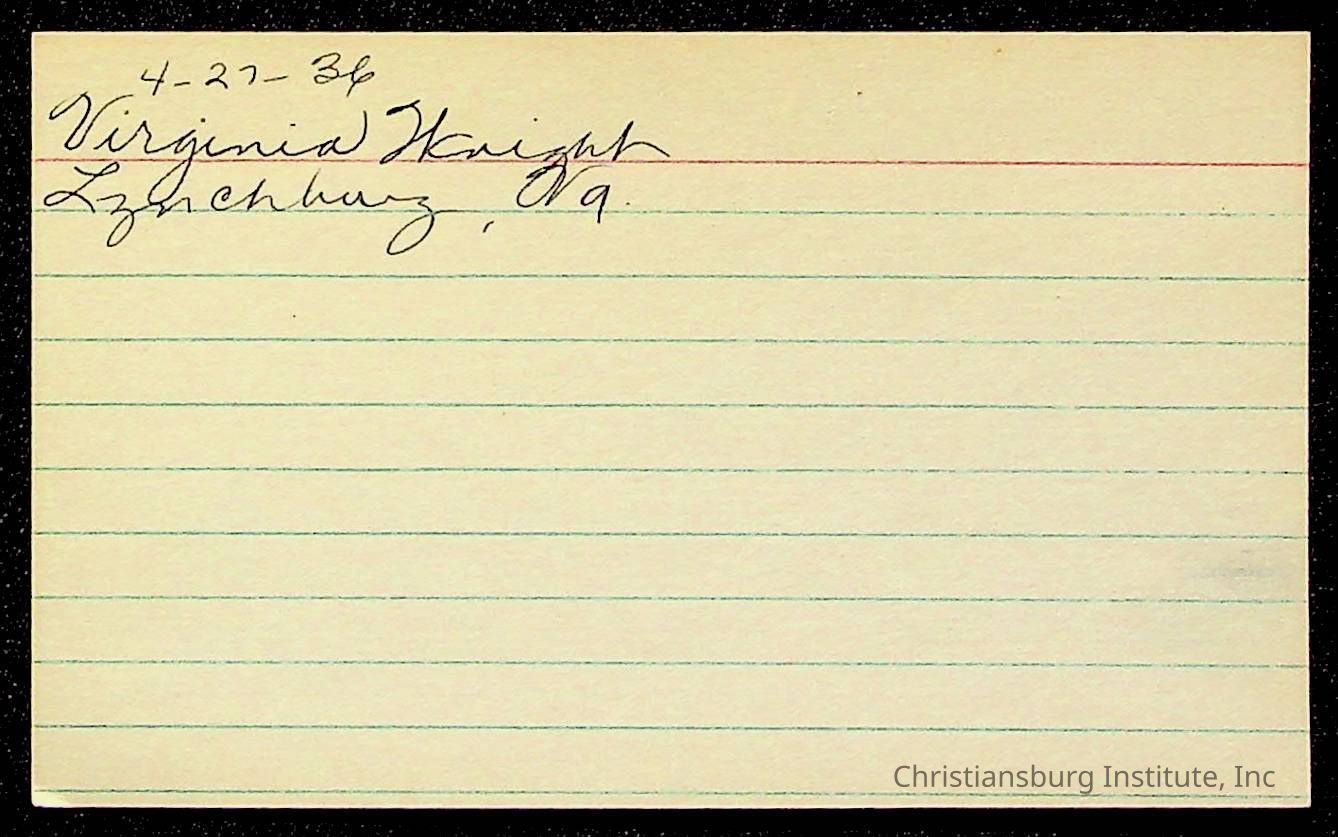 4-27-36
Virginia Knight
Lynchburg, Va.
Christiansburg Institute, Inc